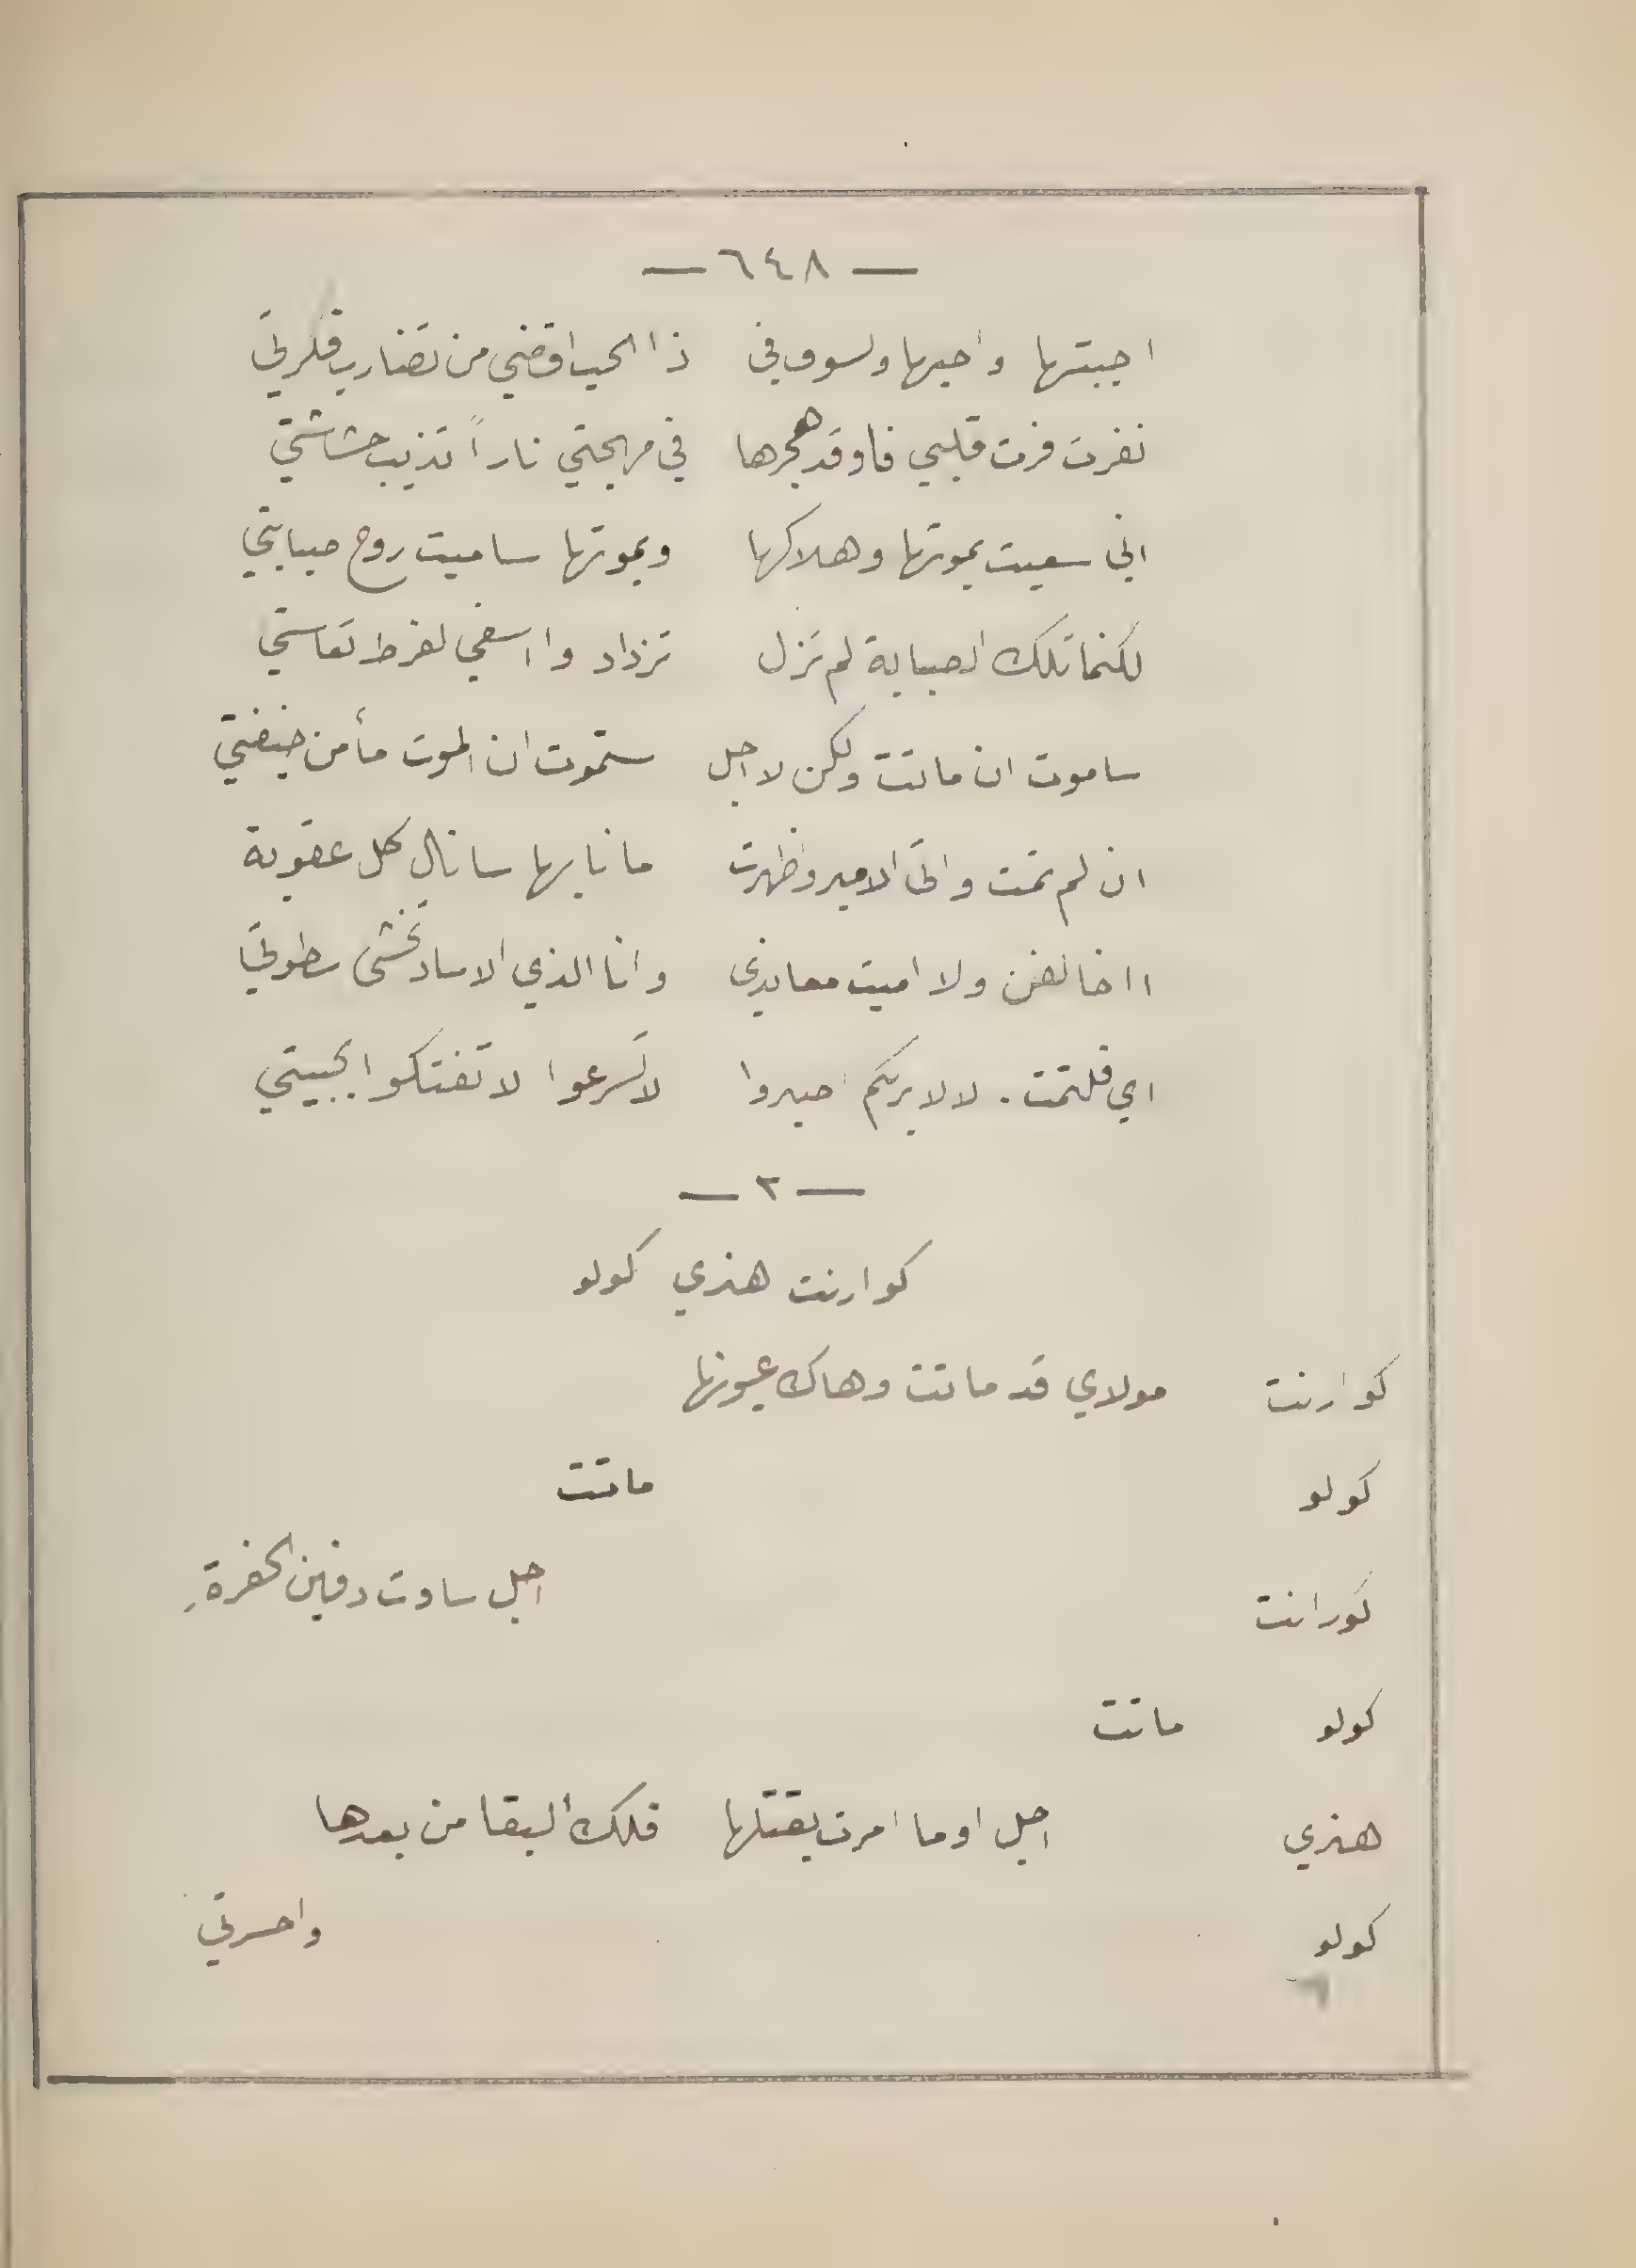 — ٦٤٨ —
احببتها واحبها ولسوف في ذا الحب اقضي من تضارب فكرتي
نفرت فرت قلبي فاوقد هجرها في مهجتي ناراً تذيب حشاشتي
اني سعيت بموتها وهلاكها وبموتها ساميت روح صبابتي
لكنما تلك الصبابة لم تزل تزداد وا اسفي لفرط تعاستي
ساموت ان ماتت ولكن لا اجل ستموت ان الموت مأمن خيفتي
ان لم تمت واتى الامير واظهرت ما نابها سانال كل عقوبة
ااخالفن ولا اميت معاندي وانا الذي الاساد تخشى سطوتي
اي فلتمت . لا لا بربكم اصبروا لا تسرعوا لا تفتكوا بحبيبتي
— ٢ —
كوارنت هنري كولو
كوارنت مولاي قد ماتت وهاك عيونها
كولو ماتت
كورانت اجل ساوت دفين الحفرةِ
كولو ماتت
هنري اجل اوما امرت بقتلها فلك ألبقا من بعدها
كولو واحسرتي